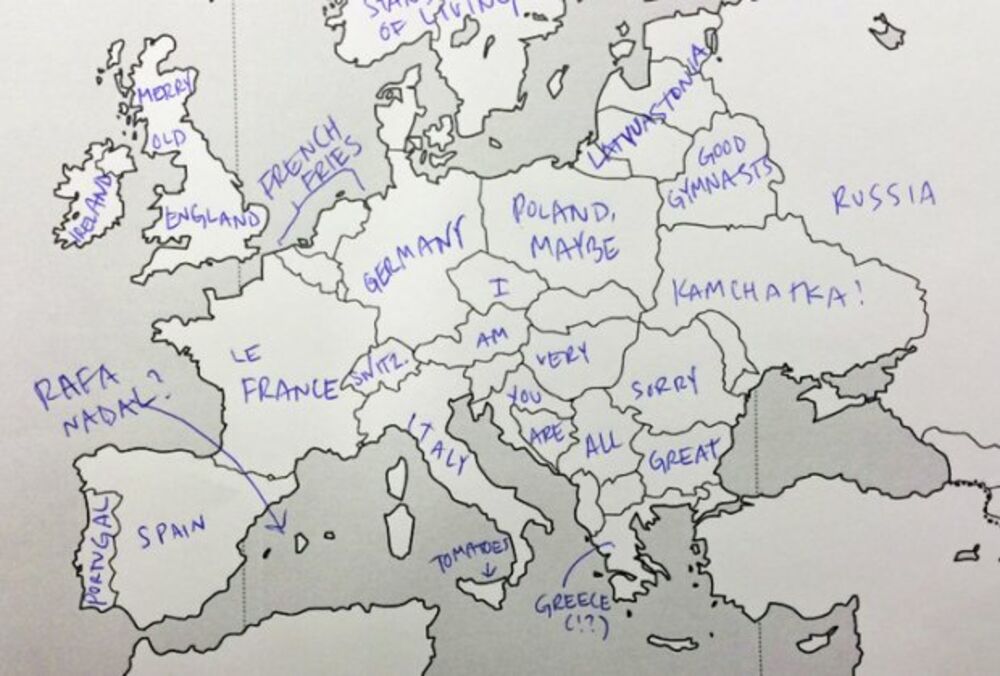 STAN
OF LIVING
MERRY
OLD
ENGLAND
IRELAND
FRENCH
FRIES
LATVUASTONIA
GOOD
GYMNASTS
RUSSIA
GERMANY
POLAND,
MAYBE
KAMCHATKA!
I
AM
VERY
SORRY
LE
FRANCE
SWITZ.
YOU
ARE
ALL
GREAT
ITALY
RAFA
NADAL?
PORTUGAL
SPAIN
TOMATOES
GREECE
(!?)